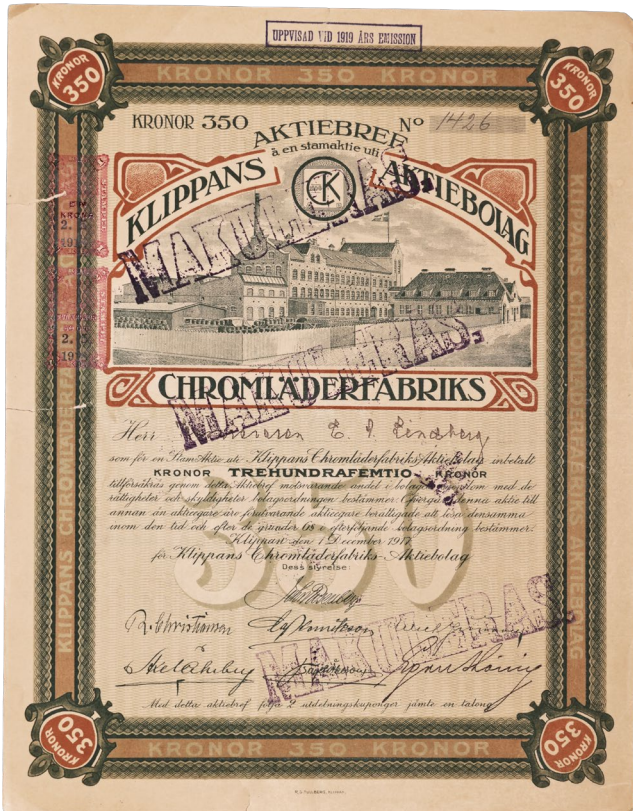 UPPVISAD VID 1919 ÅRS EMISSION
KRONOR 350
KRONOR 350
KRONOR 350 KRONOR
KRONOR 350
No 1426
AKTIEBREF
å en stamaktie uti
KLIPPANS AKTIEBOLAG
CK
CHROMLÄDERFABRIKS
MAKULERAS.
MAKULERAS.
Herr E. Lindberg
som för en Stam-Aktie uti Klippans Chromläderfabriks Aktiebolag inbetalt
KRONOR TREHUNDRAFEMTIO KRONOR
tillförsäkras genom detta Aktiebref motsvarande andel i bolaget med de
rättigheter och skyldigheter bolagsordningen bestämmer. Öfvergår denna aktie till
annan än aktieegare äro förutvarande aktieegare berättigade att lösa densamma
inom den tid och efter de grunder § 8 i efterföljande bolagsordning bestämmer.
Klippan den 1 December 1917
för Klippans Chromläderfabriks-Aktiebolag
Dess styrelse:
350
R. Christianson
MAKULERAS.
Med detta aktiebref följa 2 utdelningskuponger jämte en talong
KLIPPANS CHROMLÄDERFABRIKS
KLIPPANS CHROMLÄDERFABRIKS AKTIEBOLAG
KRONOR 350
KRONOR 350 KRONOR
KRONOR 350